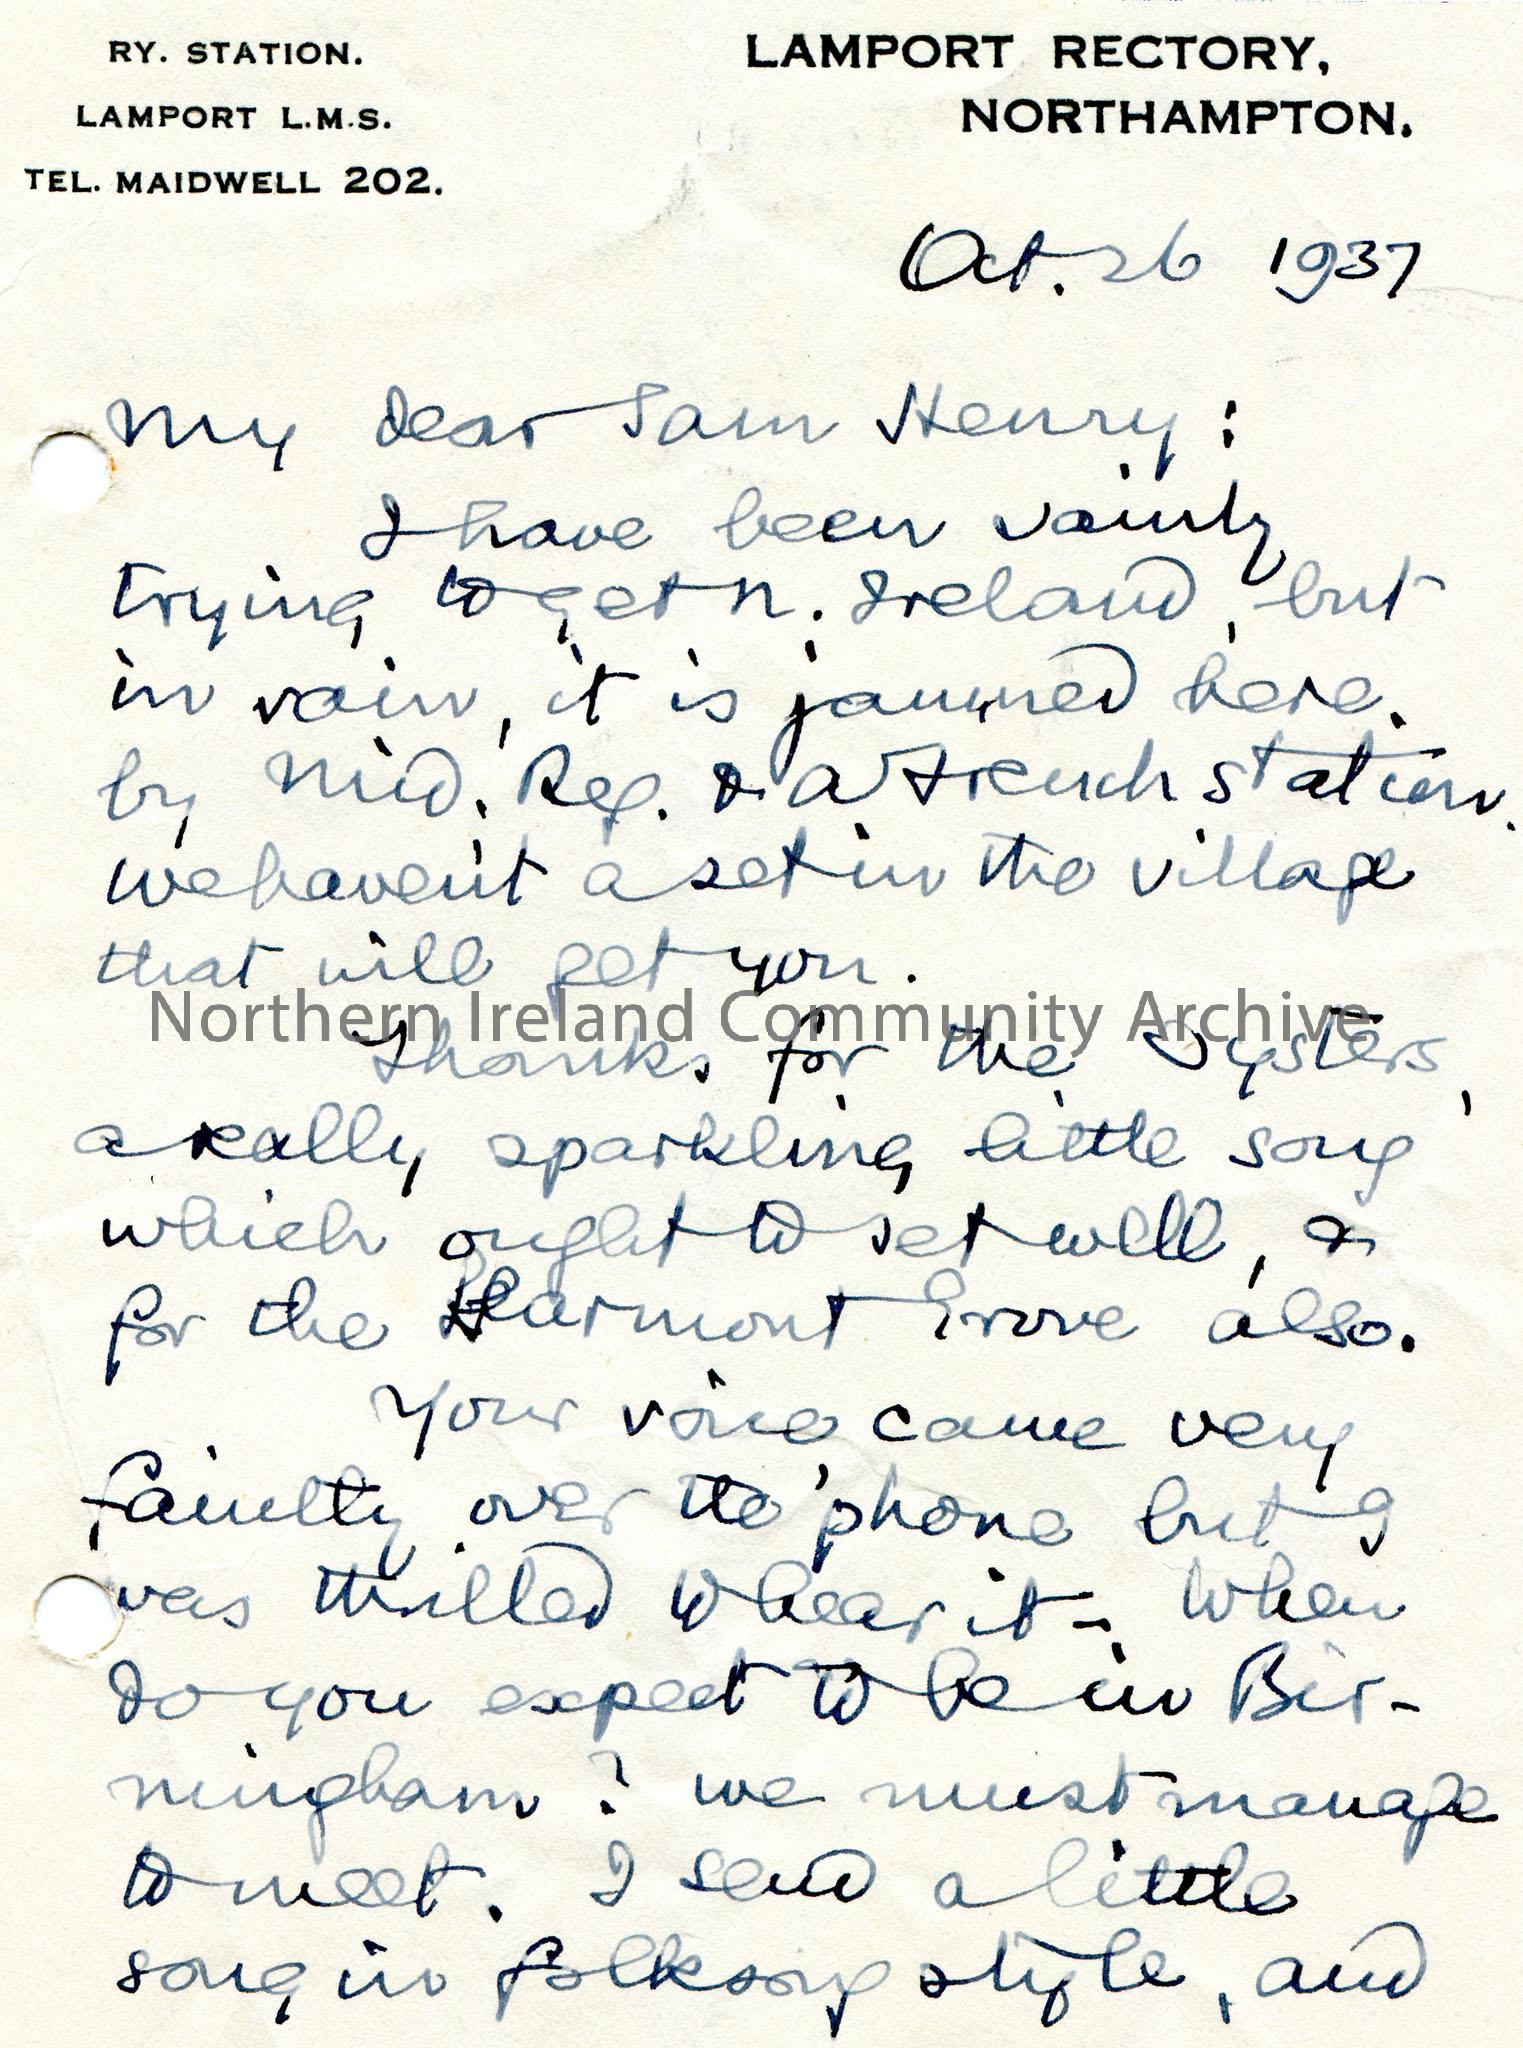 RY. STATION.
LAMPORT L.M.S.
TEL. MAIDWELL 202.
LAMPORT RECTORY,
NORTHAMPTON.
Oct. 26 1937
My dear Sam Henry:
I have been vainly
trying to get N. Ireland, but
in vain, it is jammed here.
by Mid. Reg. & a French station.
We haven't a set in the village
that will get you.
Northern Ireland Community Archive
Thanks for the Oysters,
a really sparkling little song
which ought to set well, &
for the Grove also.
Your voice came very
faintly over the 'phone but I
was thrilled to hear it - When
do you expect to be in Bir-
mingham? We must manage
to meet. I send a little
song in folksong style, and